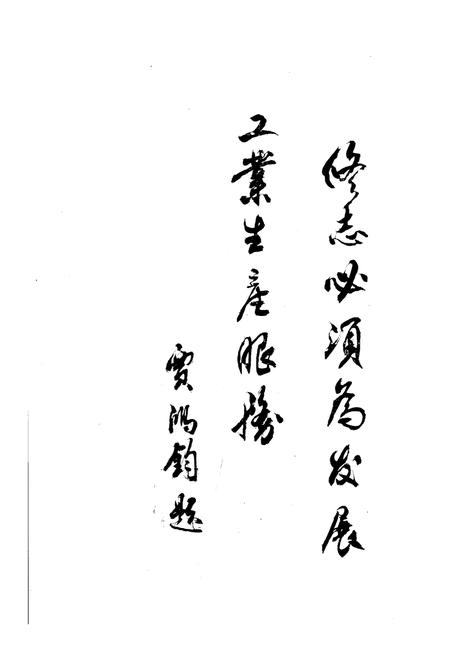 修志必須為发展
工業生産服務
賈鴻鈞題